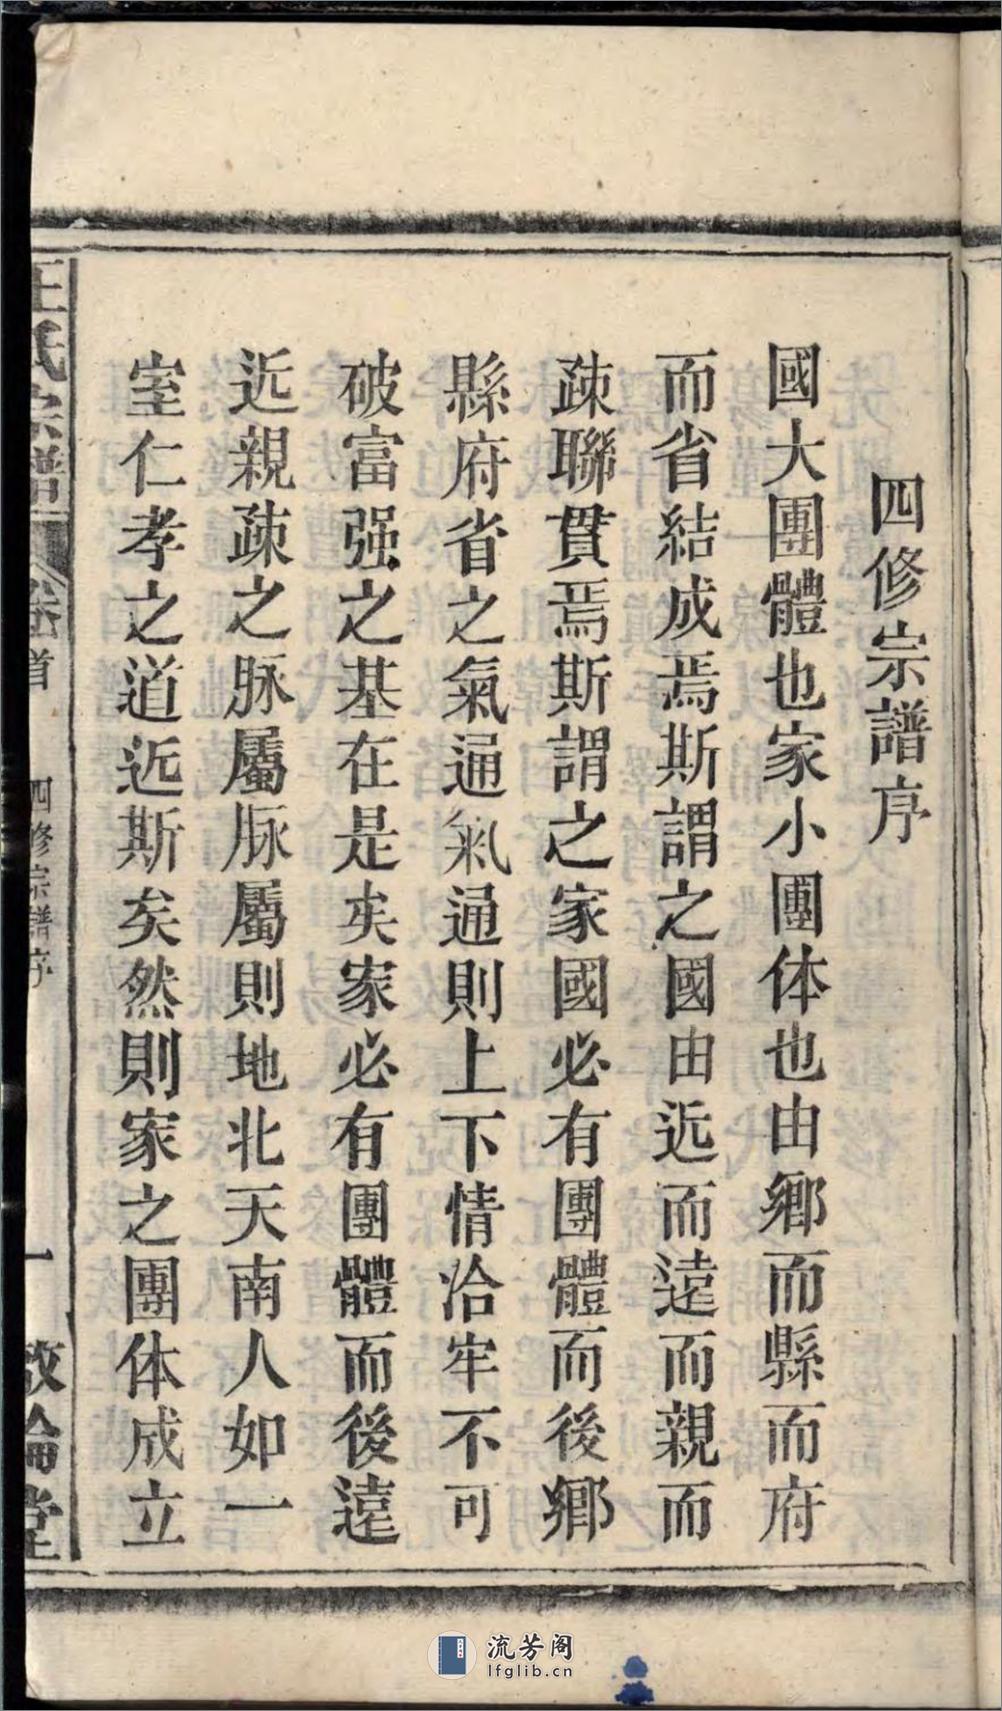 四修宗譜序
國大團體也家小團体也由鄉而縣而府
而省結成焉斯謂之國由近而遠而親而
疎聯貫焉斯謂之家國必有團體而後鄉
縣府省之氣通氣通則上下情洽牢不可
破富强之基在是矣家必有團體而後遠
近親疎之脉屬脉屬則地北天南人如一
室仁孝之道近斯矣然則家之團体成立
王氏宗譜
卷首
四修宗譜序
一
敦倫堂
流芳阁
lfglib.cn